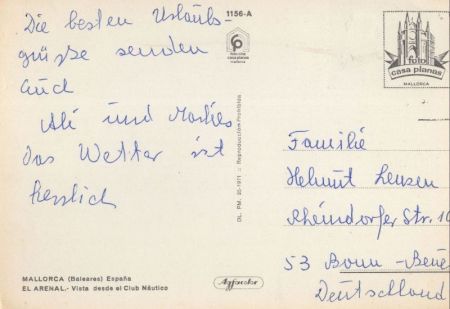 Die besten Urlaubs-
grüße senden
Euch
Ali und Marlies
das Wetter ist
herrlich
1156-A
foto-cine
casa planas
mallorca
foto
casa planas
MALLORCA
DL. PM. 95-1971 :: Reproducción Prohibida
Familie
Helmut Lensen
Rheindorfer Str. 10
53 Bonn-Beue
Deutschland
MALLORCA (Baleares) España
EL ARENAL.- Vista desde el Club Náutico
Agfacolor